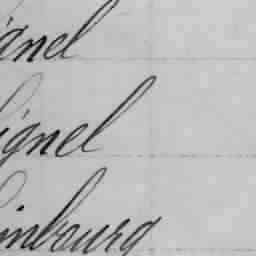 ignel
ignel
inbourg